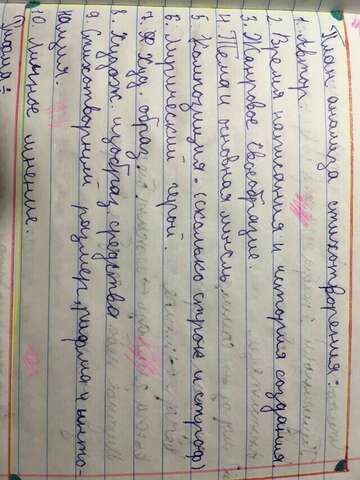 План анализа стихотворения:
1. Автор.
2. Время написания и история создания.
3. Жанровое своеобразие.
4. Тема и основная мысль.
5. Композиция. (сколько строк и строф)
6. Лирический герой.
7. Худ. образ
8. Художс. изобраз. средства
9. Стихотворный размер, рифма и инто-
нация.
10. Личное мнение.